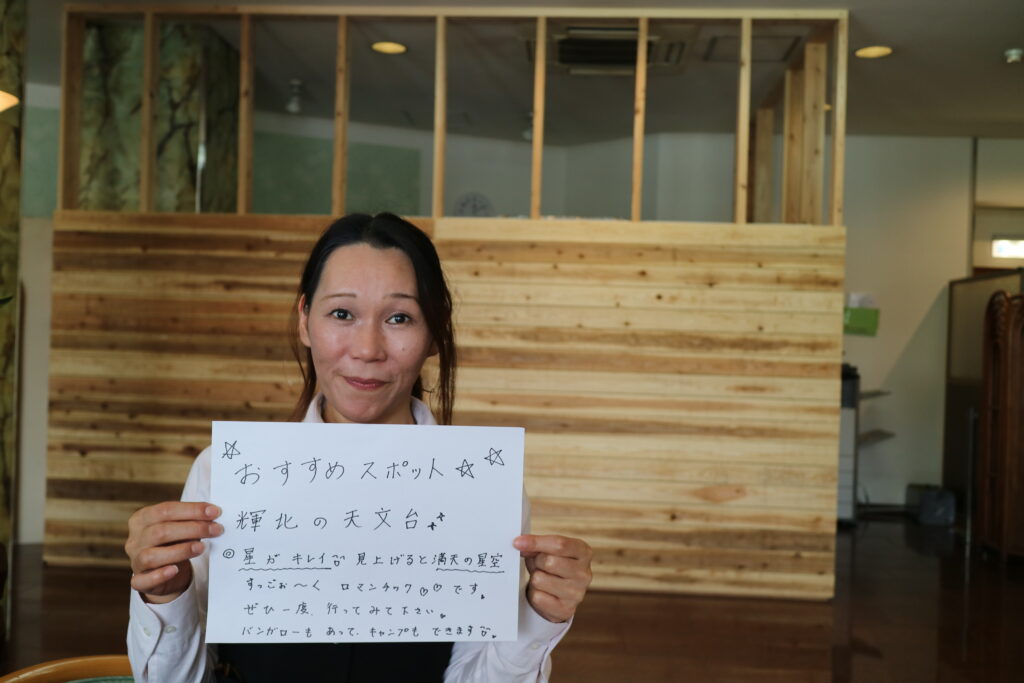 ☆おすすめスポット☆☆
輝北の天文台
◎星がキレイ 見上げると満天の星空
すっごぉ～く ロマンチック♡♡です。
ぜひ一度、行ってみて下さい。
バンガローもあって、キャンプもできます。